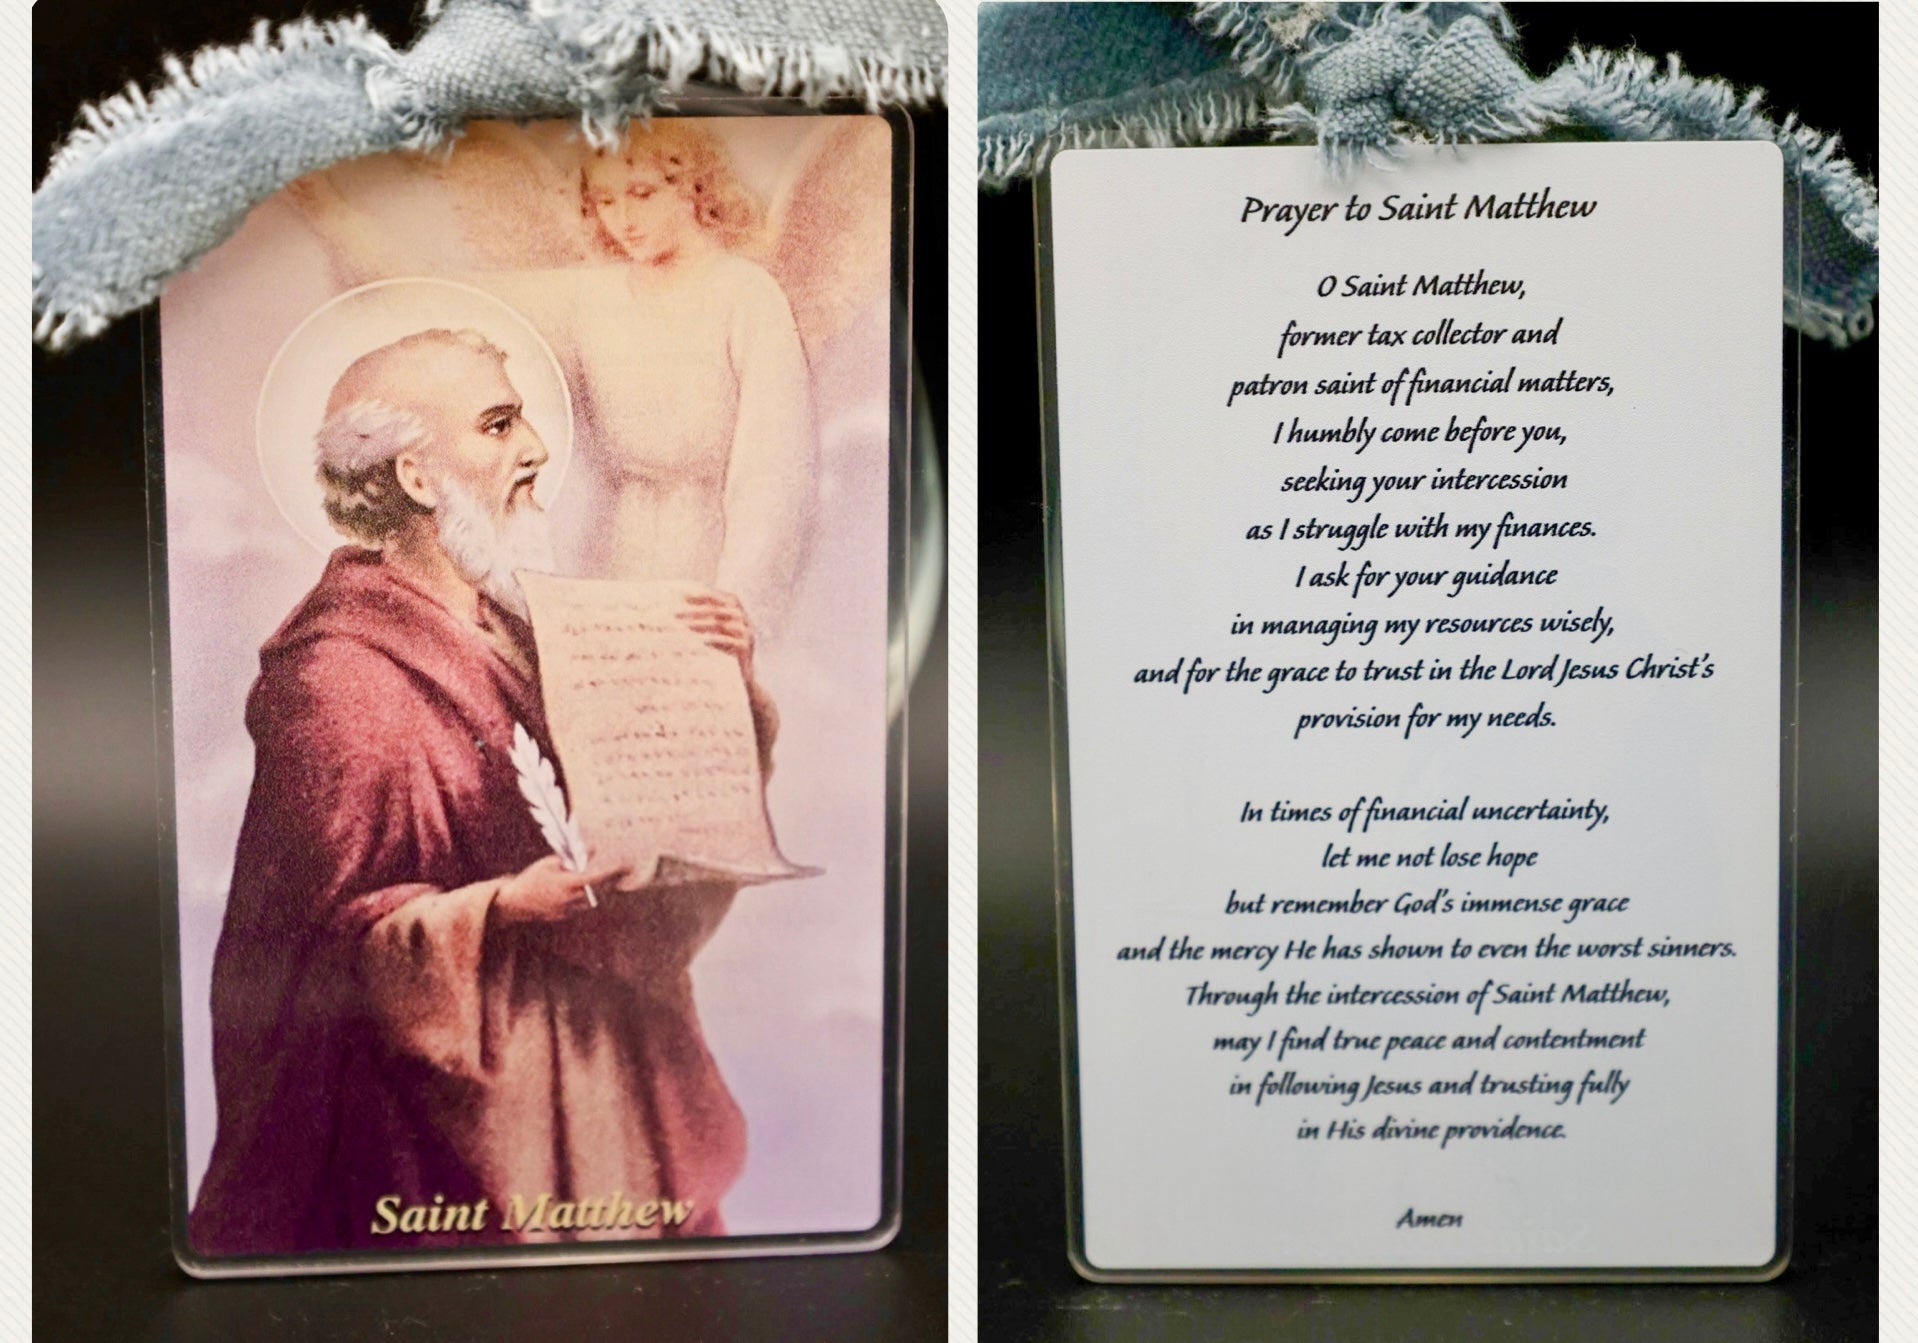 Saint Matthew
Prayer to Saint Matthew
O Saint Matthew,
former tax collector and
patron saint of financial matters,
I humbly come before you,
seeking your intercession
as I struggle with my finances.
I ask for your guidance
in managing my resources wisely,
and for the grace to trust in the Lord Jesus Christ's
provision for my needs.
In times of financial uncertainty,
let me not lose hope
but remember God's immense grace
and the mercy He has shown to even the worst sinners.
Through the intercession of Saint Matthew,
may I find true peace and contentment
in following Jesus and trusting fully
in His divine providence.
Amen